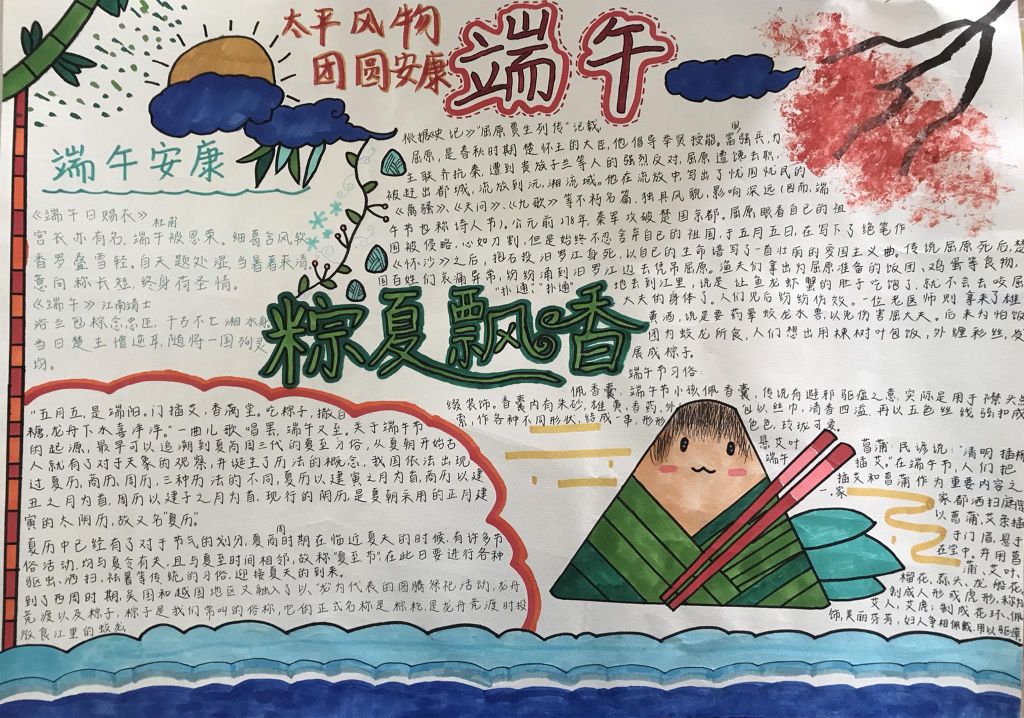 太平风物
团圆安康
端午
端午安康
《端午日赐衣》
杜甫
宫衣亦有名,端午被恩荣。细葛含风软,
香罗叠雪轻。自天题处湿,当暑著来清。
意内称长短,终身荷圣情。
《端午》江南靖士
浴兰包粽念忠臣,千古不亡湘水身
当日楚王惜逆耳,随将一国殉灵
均。
根据《史记》"屈原贾生列传"记载,
屈原,是春秋时期楚怀王的大臣,他倡导举贤授能。富国强兵,力
主联齐抗秦,遭到贵族子兰等人的强烈反对,屈原遭馋去职,
被赶出都城,流放到沅,湘流域。他在流放中,写出了忧国忧民的
《离骚》、《天问》、《九歌》等不朽名篇,独具风貌,影响深远(因而,端
午节也称诗人节)。公元前278年,秦军攻破楚国京都。屈原眼看自己的祖
国被侵略,心如刀割,但是始终不忍舍弃自己的祖国,于五月五日,在写下了绝笔作
《怀沙》之后,抱石投汨罗江身死,以自己的生命谱写了一首壮丽的爱国主义曲。传说屈原死后,楚
国百姓们哀痛异常,纷纷涌到汨罗江边去凭吊屈原。渔夫们拿出为屈原准备的饭团、鸡蛋等食物,
"扑通、"扑通"地丢到江里,说是让鱼龙虾蟹的肚子吃饱了,就不会去咬屈
大夫的身体了。人们见后纷纷仿效。一位老医师则拿来了雄
黄酒,说是要药晕蛟龙水兽,以免伤害屈大夫。后来为怕饭
团为蛟龙所食,人们想出用楝树叶包饭,外缠彩丝,发
展成棕子。
粽夏飘香
端午节习俗:
佩香囊:端午节小孩佩香囊,传说有避邪驱瘟之意,实际是用于襟头点
缀装饰。香囊内有朱砂,雄黄,香药,外包以丝巾,清香四溢,再以五色丝线弦扣成
索,作各种不同形状,结成一串,形形色色,玲珑可爱。
悬艾叶
菖蒲:民谚说:"清明插柳
端午插艾。"在端午节,人们把
插艾和菖蒲作为重要内容之
一。家家都洒扫庭院
以菖蒲,艾条插
于门眉,悬于
在堂中。并用菖
蒲、艾叶、
榴花、蒜头、龙船花,
制成人形或虎形,称为
艾人,艾虎;制成花环、佩
饰,美丽芬芳,妇人争相佩戴,用以驱瘴。
"五月五,是端阳。门插艾,香满堂。吃粽子,撒白
糖,龙舟下水喜洋洋。"一曲儿歌唱罢,端午又至。关于端午节
的起源,最早可以追溯到夏商周三代的夏至习俗,从夏朝开始古
人就有了对于天象的观察,并诞生了历法的概念,我国依法出现
过夏历,商历,周历,三种历法的不同,夏历以建寅之月为首,商历以建
丑之月为首,周历以建子之月为首,现行的阴历,是夏朝采用的正月建
寅的太阴历,故又名"夏历"。
夏历中已经有了对于节气的划分,夏商周时期在临近夏天的时候,有许多节
俗活动,均与夏令有关,且与夏至时间相邻,故称"夏至节",在此日要进行各种
驱虫、洒扫、祛暑等传统的习俗,迎接夏天的到来。
到了西周时期,吴国和越国地区又融入了以"龙"为代表的图腾祭祀活动,龙舟
竞渡以及粽子,粽子是我们常叫的俗称,它的正式名称是,是龙舟竞渡时投
放食江里的蛟龙